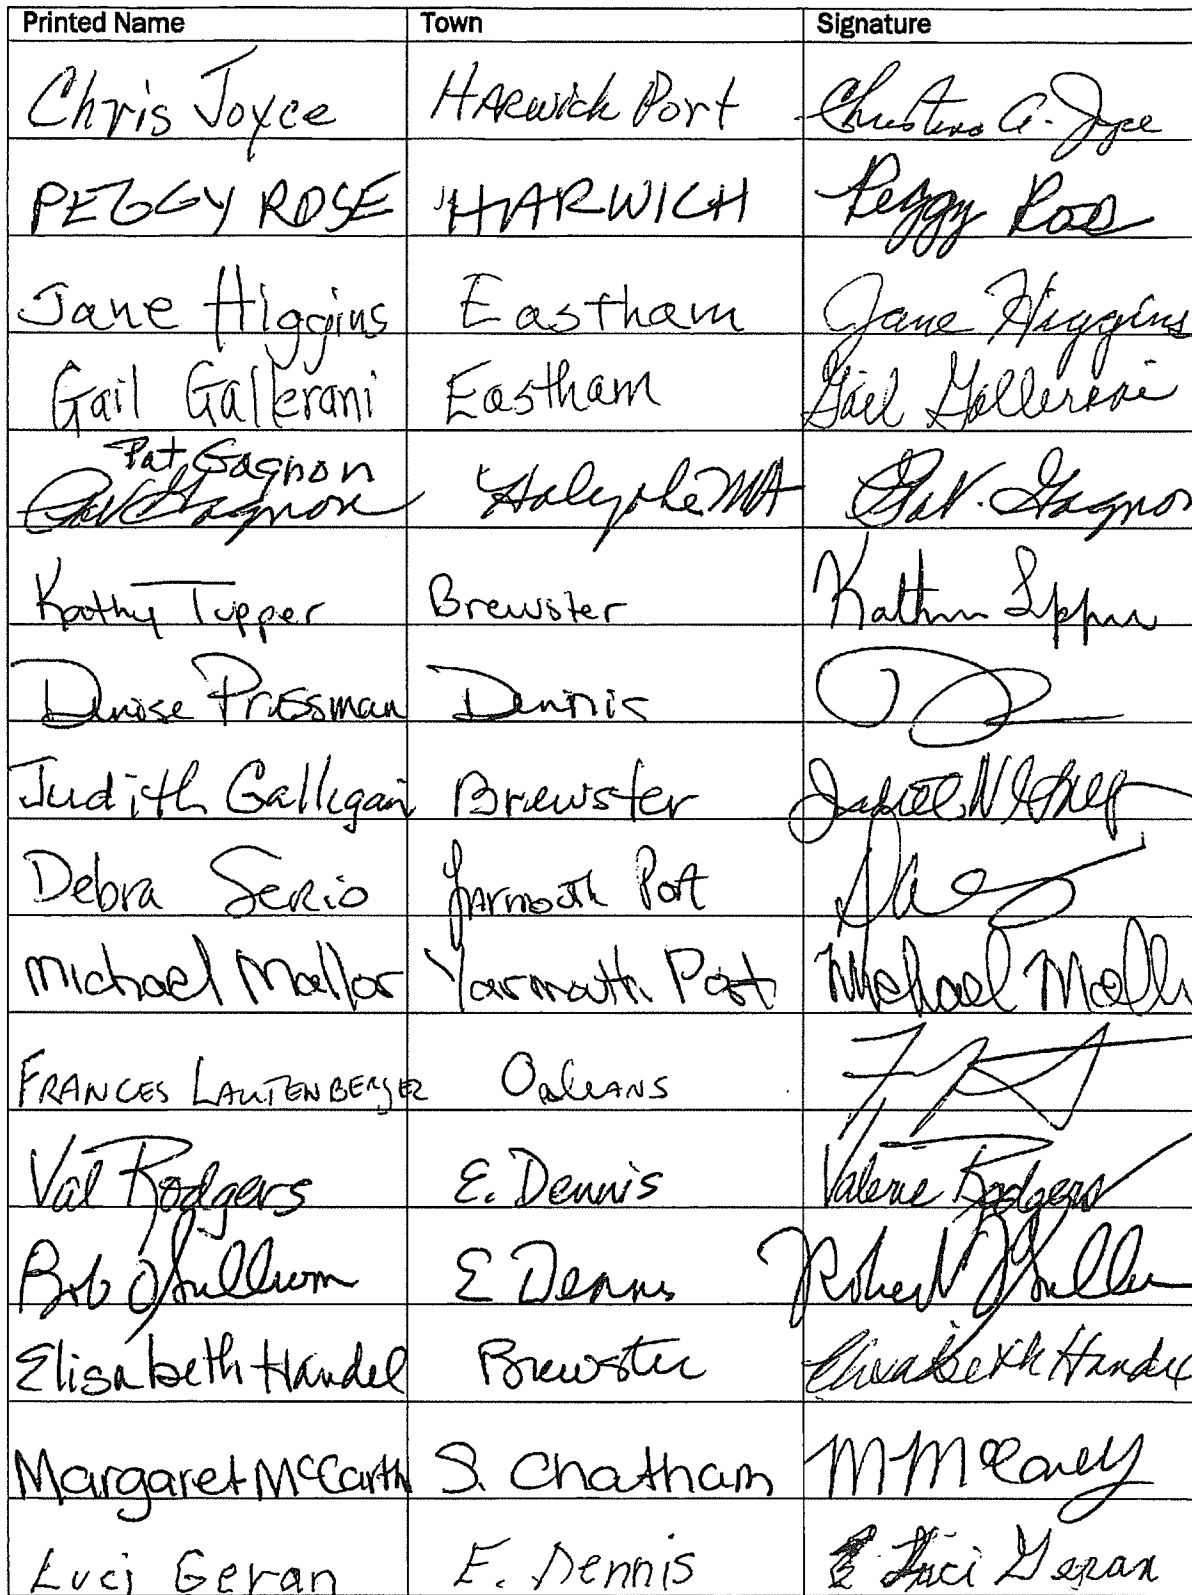 Printed Name Town Signature
Chris Joyce HARwick Port Christina A. Joyce
PEGGY ROSE HARWICH Peggy Rose
Jane Higgins Eastham Jane Higgins
Gail Gallerani Eastham Gail Gallerani
Pat Gagnon
Pat Gagnon Holyoke MA Pat. Gagnon
Kathy Tupper Brewster
Denise Pressman Dennis
Judith Galligan Brewster
Debra Serio Yarmouth Port
Michael Mallor Yarmouth Port Michael
FRANCES LAUTENBERGER ORLEANS
Val Rodgers E. Dennis Valerie Rodgers
Bob O'Sullivan E Dennis Robert
Elisabeth Handel Brewster Elisabeth Handel
Margaret McCarth S. Chatham
Luci Geran E. Dennis Luci Geran